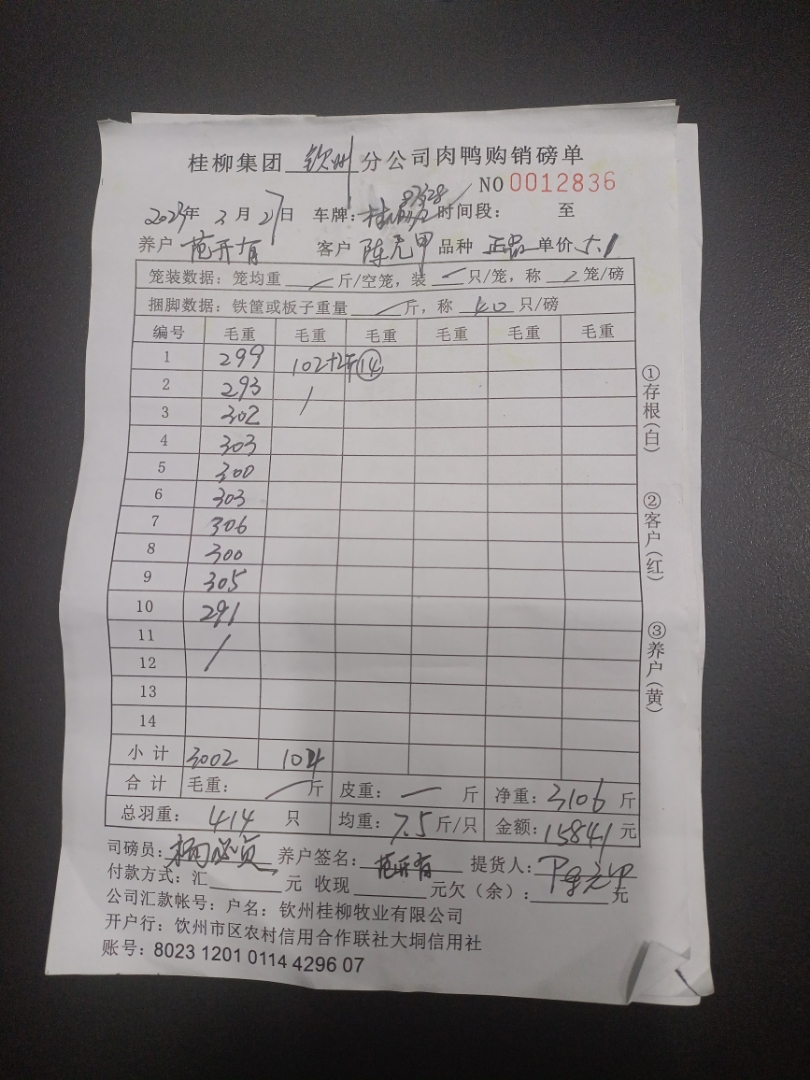 桂柳集团 钦州 分公司肉鸭购销磅单
NO 0012836
2023年 3月27日 车牌: 87328 时间段: 至
养户 范开有 客户 陈克甲 品种 正品 单价 5.1
笼装数据: 笼均重 / 斤/空笼, 装 / 只/笼, 称 / 笼/磅
捆脚数据: 铁筐或板子重量 / 斤, 称 40 只/磅
编号 毛重 毛重 毛重 毛重 毛重 毛重
1 299 102+2斤 ⑭
2 293 /
3 302
4 303
5 300
6 303
7 306
8 300
9 305
10 291
11
12 /
13
14
小计 3002 104
合计 毛重: / 斤 皮重: 一 斤 净重: 3106 斤
总羽重: 414 只 均重: 7.5 斤/只 金额: 15841 元
司磅员: 养户签名: 范开有 提货人:
付款方式: 汇 元 收现 元欠(余): 元
公司汇款帐号: 户名: 钦州桂柳牧业有限公司
开户行: 钦州市区农村信用合作联社大垌信用社
账号: 8023 1201 0114 4296 07
①存根(白)
②客户(红)
③养户(黄)